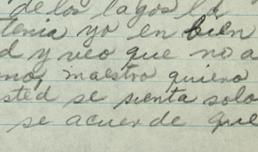 de los lagos la
tenia yo en bien
d y veo que no a
no, maestro quiero
sted se sienta solo
se acuerde que